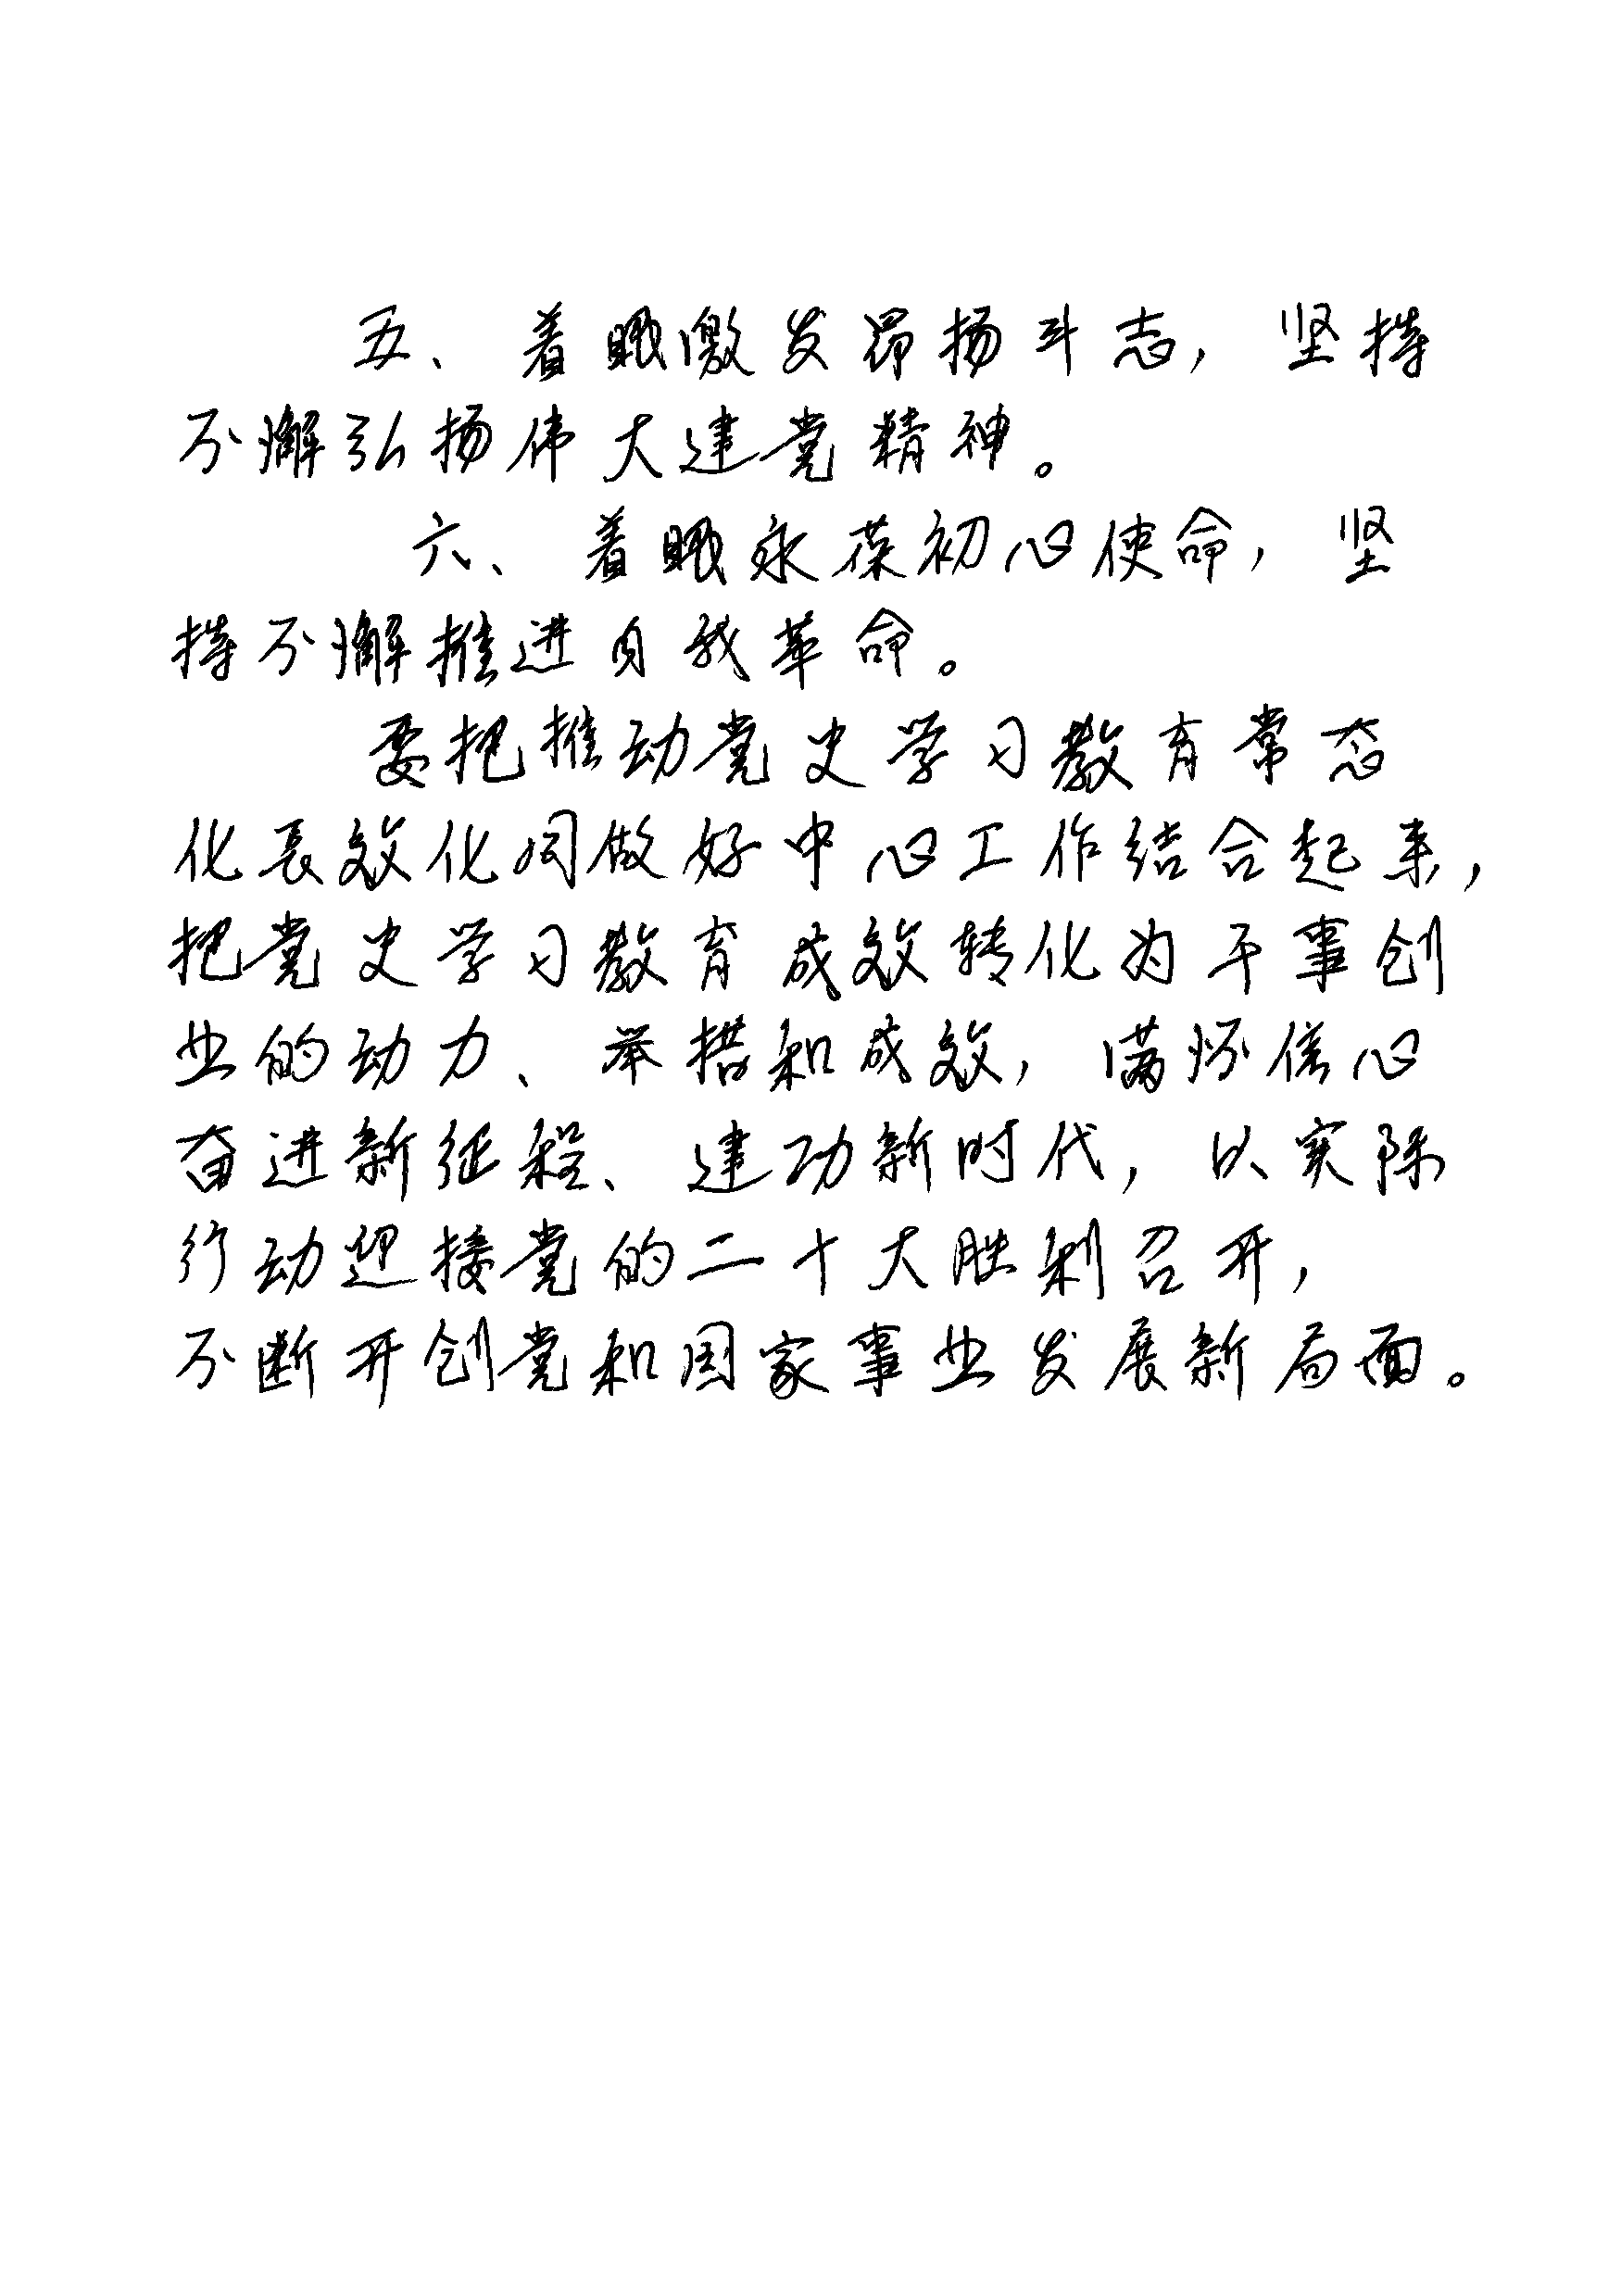 五、着眼激发昂扬斗志，坚持
不懈弘扬伟大建党精神。
六、着眼永葆初心使命，坚
持不懈推进自我革命。
要把推动党史学习教育常态
化长效化同做好中心工作结合起来，
把党史学习教育成效转化为干事创
业的动力、举措和成效，满怀信心
奋进新征程、建功新时代，以实际
行动迎接党的二十大胜利召开，
不断开创党和国家事业发展新局面。